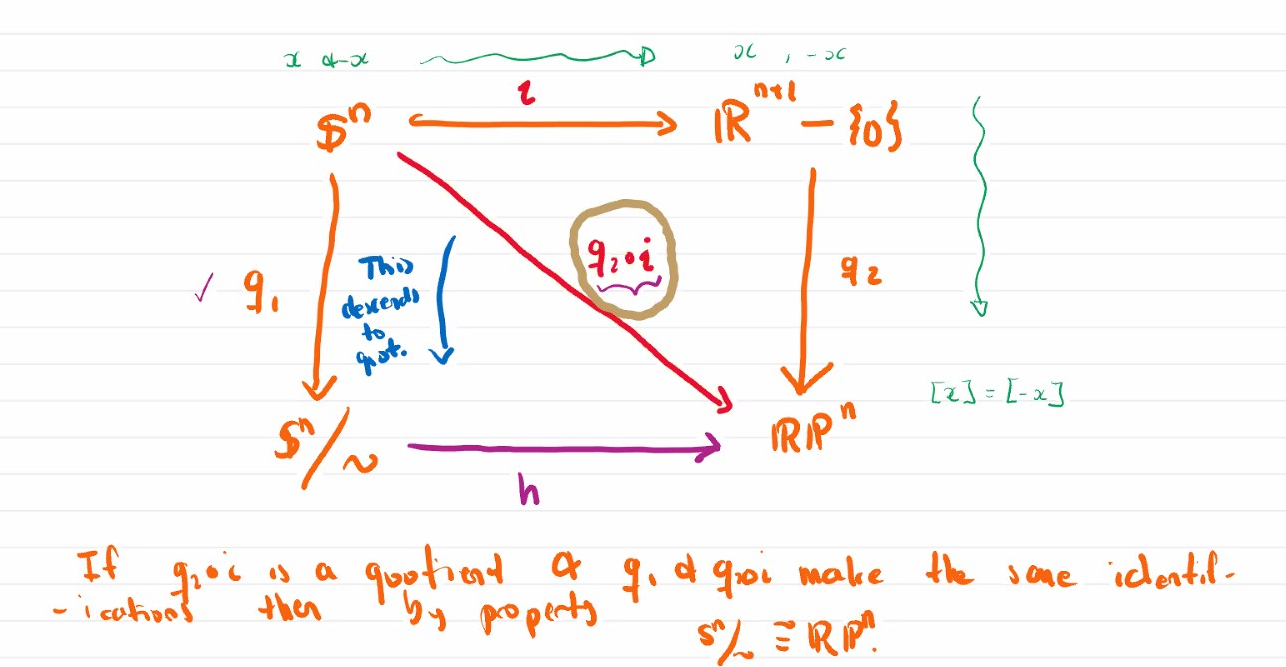 x & -x
x , -x
i
𝕊ⁿ
ℝⁿ⁺¹ - {0}
q₂∘i
q₁
This
descends
to
quot.
q₂
[x] = [-x]
𝕊ⁿ/~
ℝPⁿ
h
If q₂∘i is a quotient & q₁ & q₂∘i make the same identif-
-ications then by property
Sⁿ/~ ≅ ℝPⁿ.